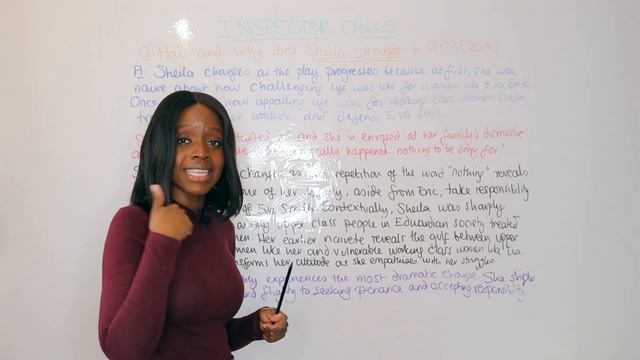 INSPECTOR CALLS
Q: How and why does Sheila change in AIC? (20m)
A: Sheila changes as the play progresses because at first, she was
naive about how challenging life was like for women like Eva Smith
Once how appalling life was for working class women, Sheila
her attitude and defends Eva Smith.
and she is enraged at her family's dismissive
happened... nothing to be sorry for"
change as the repetition of the word "nothing" reveals
of her family, aside from Eric, take responsibility
of Eva Smith. Contextually, Sheila was sharply
upper class people in Edwardian society treated
. Her earlier naivete reveals the gulf between upper
men like her and vulnerable working class women like Eva.
her attitude as she empathises with her struggles
experiences the most dramatic change. She shifts
to seeking penance and accepting responsibility.